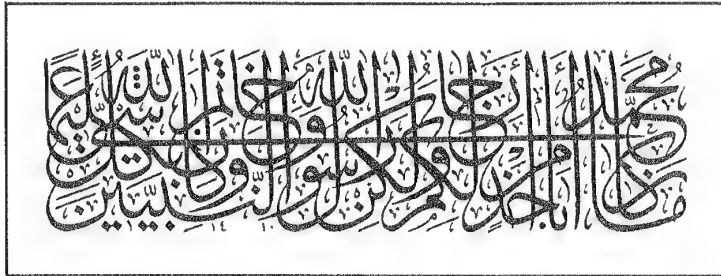 مَا كَانَ مُحَمَّدٌ أَبَا أَحَدٍ مِنْ رِجَالِكُمْ وَلَكِنْ رَسُولَ اللَّهِ وَخَاتَمَ النَّبِيِّينَ وَكَانَ اللَّهُ بِكُلِّ شَيْءٍ عَلِيمًا